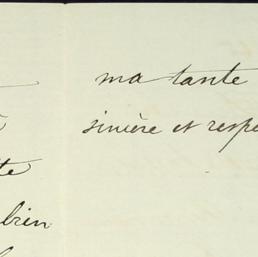 ma tante
sincère et respe
te
bien